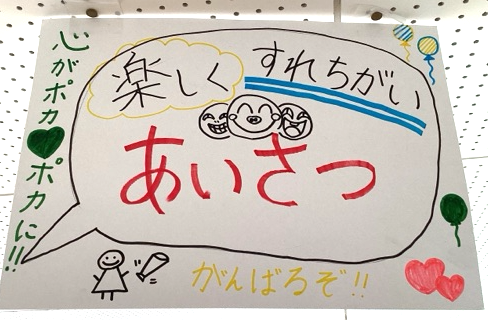 心がポカ♥ポカに!!
楽しく
すれちがい
あいさつ
がんばるぞ!!